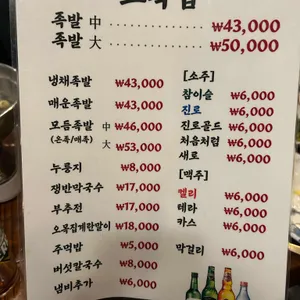 족발 中 ₩43,000
족발 大 ₩50,000
냉채족발 ₩43,000
매운족발 ₩43,000
모듬족발 中 ₩46,000
(온족/매족) 大 ₩53,000
누룽지 ₩8,000
쟁반막국수 ₩17,000
부추전 ₩17,000
오목집계란말이 ₩18,000
주먹밥 ₩5,000
버섯칼국수 ₩8,000
냄비추가 ₩6,000
[소주]
참이슬 ₩6,000
진로 ₩6,000
진로골드 ₩6,000
처음처럼 ₩6,000
새로 ₩6,000
[맥주]
켈리 ₩6,000
테라 ₩6,000
카스 ₩6,000
막걸리 ₩6,000